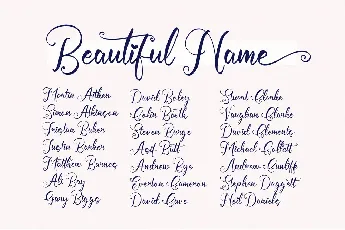 Beautiful Name
Martin Aitken
Simon Atkinson
Tristan Baker
Justin Barker
Matthew Barnes
Ali Bay
Gary Biggs
David Boley
Colin Booth
Steven Burge
Asif Butt
Andrew Bye
Everton Cameron
David Cave
Stuart Clarke
Vaughan Clarke
David Clements
Michael Collett
Andrew Cunliff
Stephen Doggett
Neil Daniels